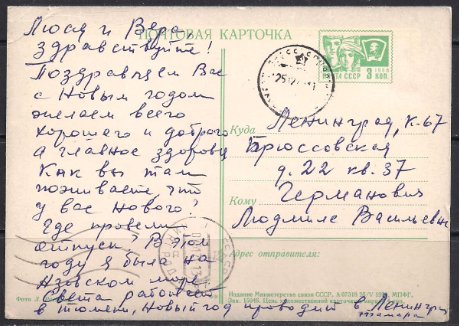 ПОЧТОВАЯ КАРТОЧКА
Люся и Вера
здравствуйте!
Поздравляем Вас
с Новым годом
желаем всего
хорошего и доброго
а главное здоровья
Как вы там
поживаете что
у вас нового?
Где провели
отпуск? В этом
году я была на
Азовском море
Света работает
в Тюмени, Новый год проводит в Ленингр
Тамара
ПОЧТА СССР 3 КОП.
Куда Ленинград, К-67
Брюссовская
д. 22 кв. 37
Кому Германович
Людмиле Васильевне
Адрес отправителя:
Издание Министерства связи СССР.
Фото